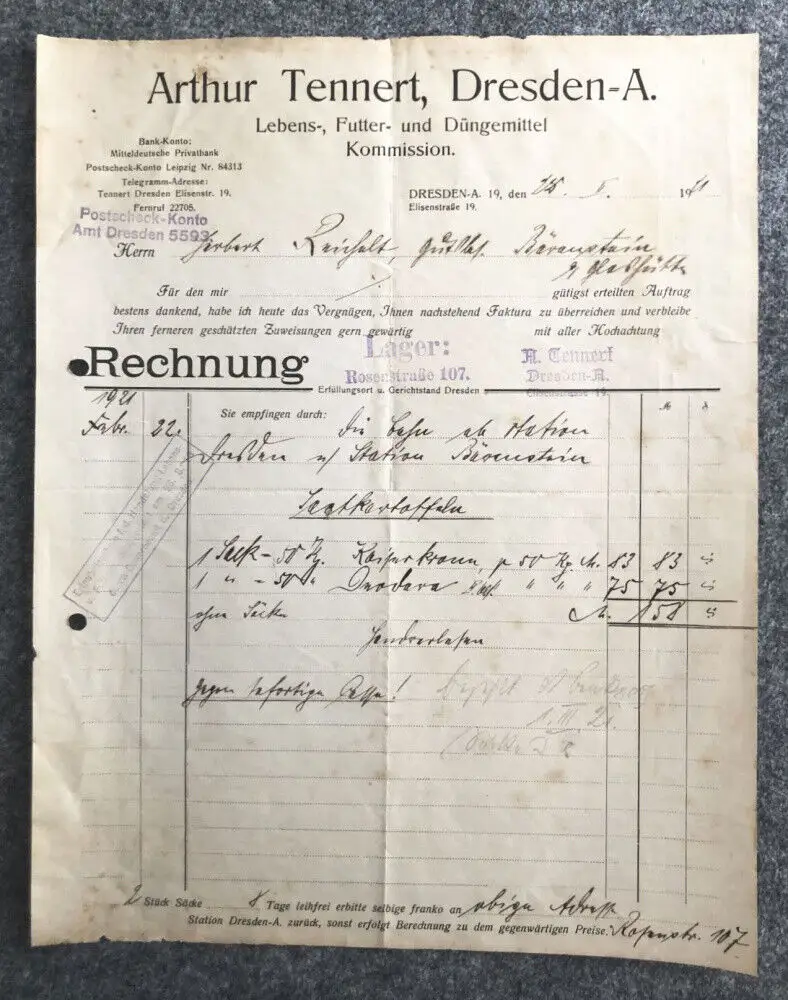 Arthur Tennert, Dresden-A.
Lebens-, Futter- und Düngemittel
Kommission.
Bank-Konto:
Mitteldeutsche Privatbank
Postscheck-Konto Leipzig Nr. 84313
Telegramm-Adresse:
Tennert Dresden Elisenstr. 19.
Fernruf 22705.
Postscheck-Konto
Amt Dresden 5593
DRESDEN-A. 19, den 1921
Elisenstraße 19.
Herrn Herbert Reichelt, Gutsbes. Bärenstein
Glashütte
Für den mir gütigst erteilten Auftrag
bestens dankend, habe ich heute das Vergnügen, Ihnen nachstehend Faktura zu überreichen und verbleibe
Ihren ferneren geschätzten Zuweisungen gern gewärtig mit aller Hochachtung
Lager:
Rosenstraße 107.
A. Tennert
Dresden-A.
Elisenstraße 19.
Rechnung
Erfüllungsort u. Gerichtstand Dresden
1921
Febr. 22. Sie empfingen durch: die Bahn ab Station
Dresden n/ Station Bärenstein
Saatkartoffeln
1 Sack - 50 Kg. Kaiserkrone, p 50 Kg. M. 83 83
1 " - 50 " Deodara " " " 75 75
ohne Säcke M. 158
Handverlesen
gegen sofortige Cassa!
1. III. 21.
2 Stück Säcke 8 Tage leihfrei erbitte selbige franko an obige Adresse
Station Dresden-A. zurück, sonst erfolgt Berechnung zu dem gegenwärtigen Preise. Rosenstr. 107